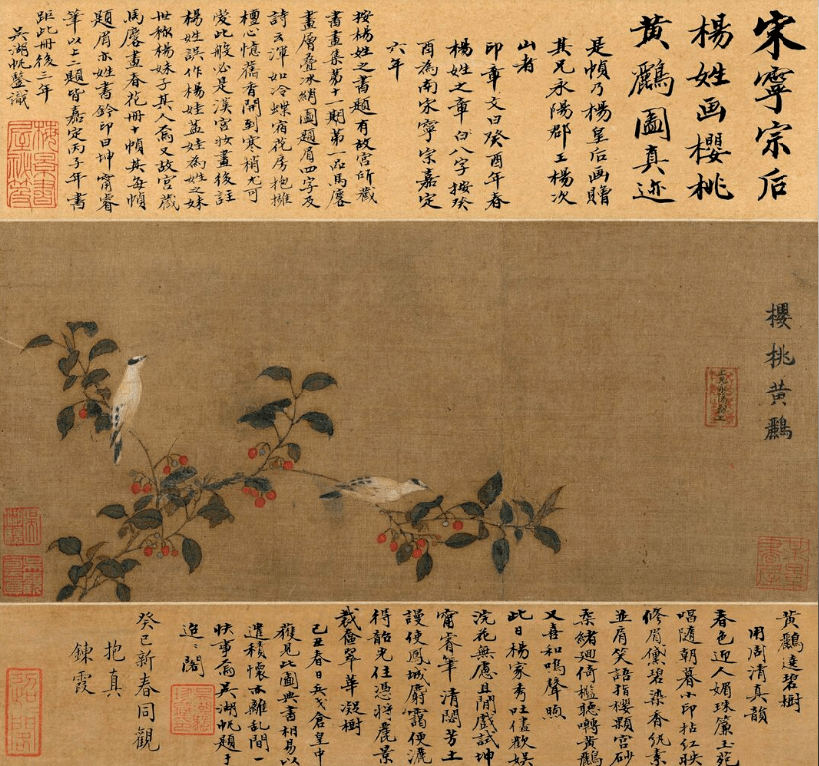 宋寧宗后
楊姓画櫻桃
黃鸝圖真迹
是幀乃楊皇后画贈
其兄永陽郡王楊次
山者
印章文曰癸酉年春
楊姓之章白八字按癸
酉為南宋寧宗嘉定
六年
按楊姓之書題有故宮所藏
書畫集第十一期第一品馬麐
畫層疊冰綃圖題眉四字及
詩云渾如冷蝶宿花房抱擁
檀心憶舊香開到寒梢尤可
愛此般必是漢宮妝畫後註
楊姓誤作楊娃并娃為姓之妹
世稱楊妹子其人焉又故宮藏
馬麐畫春花冊十幀其每幀
題眉亦姓書鈐印曰坤寧睿
筆以上二題皆嘉定丙子年書
距此冊後三年
吳湖帆鑒識
櫻桃黃鸝
上兄永陽郡王
黃鸝遶碧樹
用周清真韻
春色近人媚珠簾玉苑
唱隨朝暮小印拈紅映
修眉黛碧染香紈素
並肩笑語指櫻顆宮砂
柔緒迴倚檻聽囀黃鸝
又喜和鳴聲煦
此日楊家秀吐儘歡娛
浣花無慮且閒戲試坤
寧睿筆清閟芳土
謾使鳳城麝靄便漉
得韶光住憑將麗景
翠華凝樹
己丑春日兵戈倉皇中
獲見此圖典書相易以
遣積懷亦離亂間一
快事焉吳湖帆題于
迢迢閣
癸巳新春同觀
抱真
鍊霞